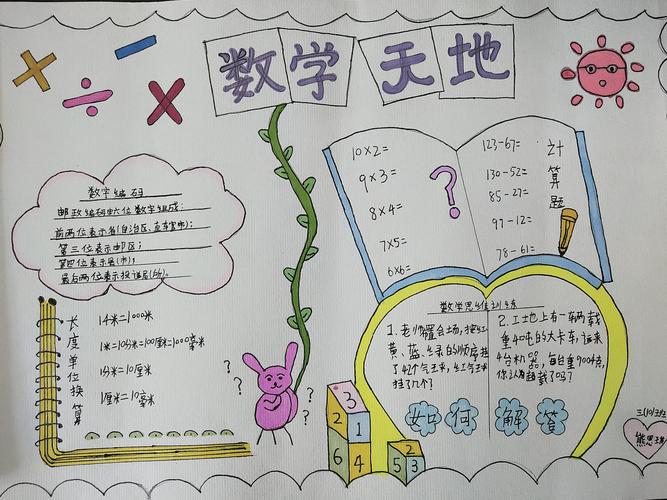 数学天地
数字编码
邮政编码由六位数字组成:
前两位表示省(自治区、直辖市);
第三位表示邮区;
第四位表示县(市);
最后两位表示投递局(所)。
长度单位换算
1千米=1000米
1米=10分米=100厘米=1000毫米
1分米=10厘米
1厘米=10毫米
?
?
?
?
?
3
2
1
6
4
2
5
3
10×2=
9×3=
8×4=
7×5=
6×6=
?
123-67=
130-52=
85-27=
97-12=
78-61=
计算题
数学思维训练
1.老师布置会场,按红
黄、蓝、绿的顺序挂
了42个气球,红气球
挂了几个?
2.工地上有一辆载
重40吨的大卡车,运来
4台机器,每台重9004克,
你认为超载了吗?
如何解答